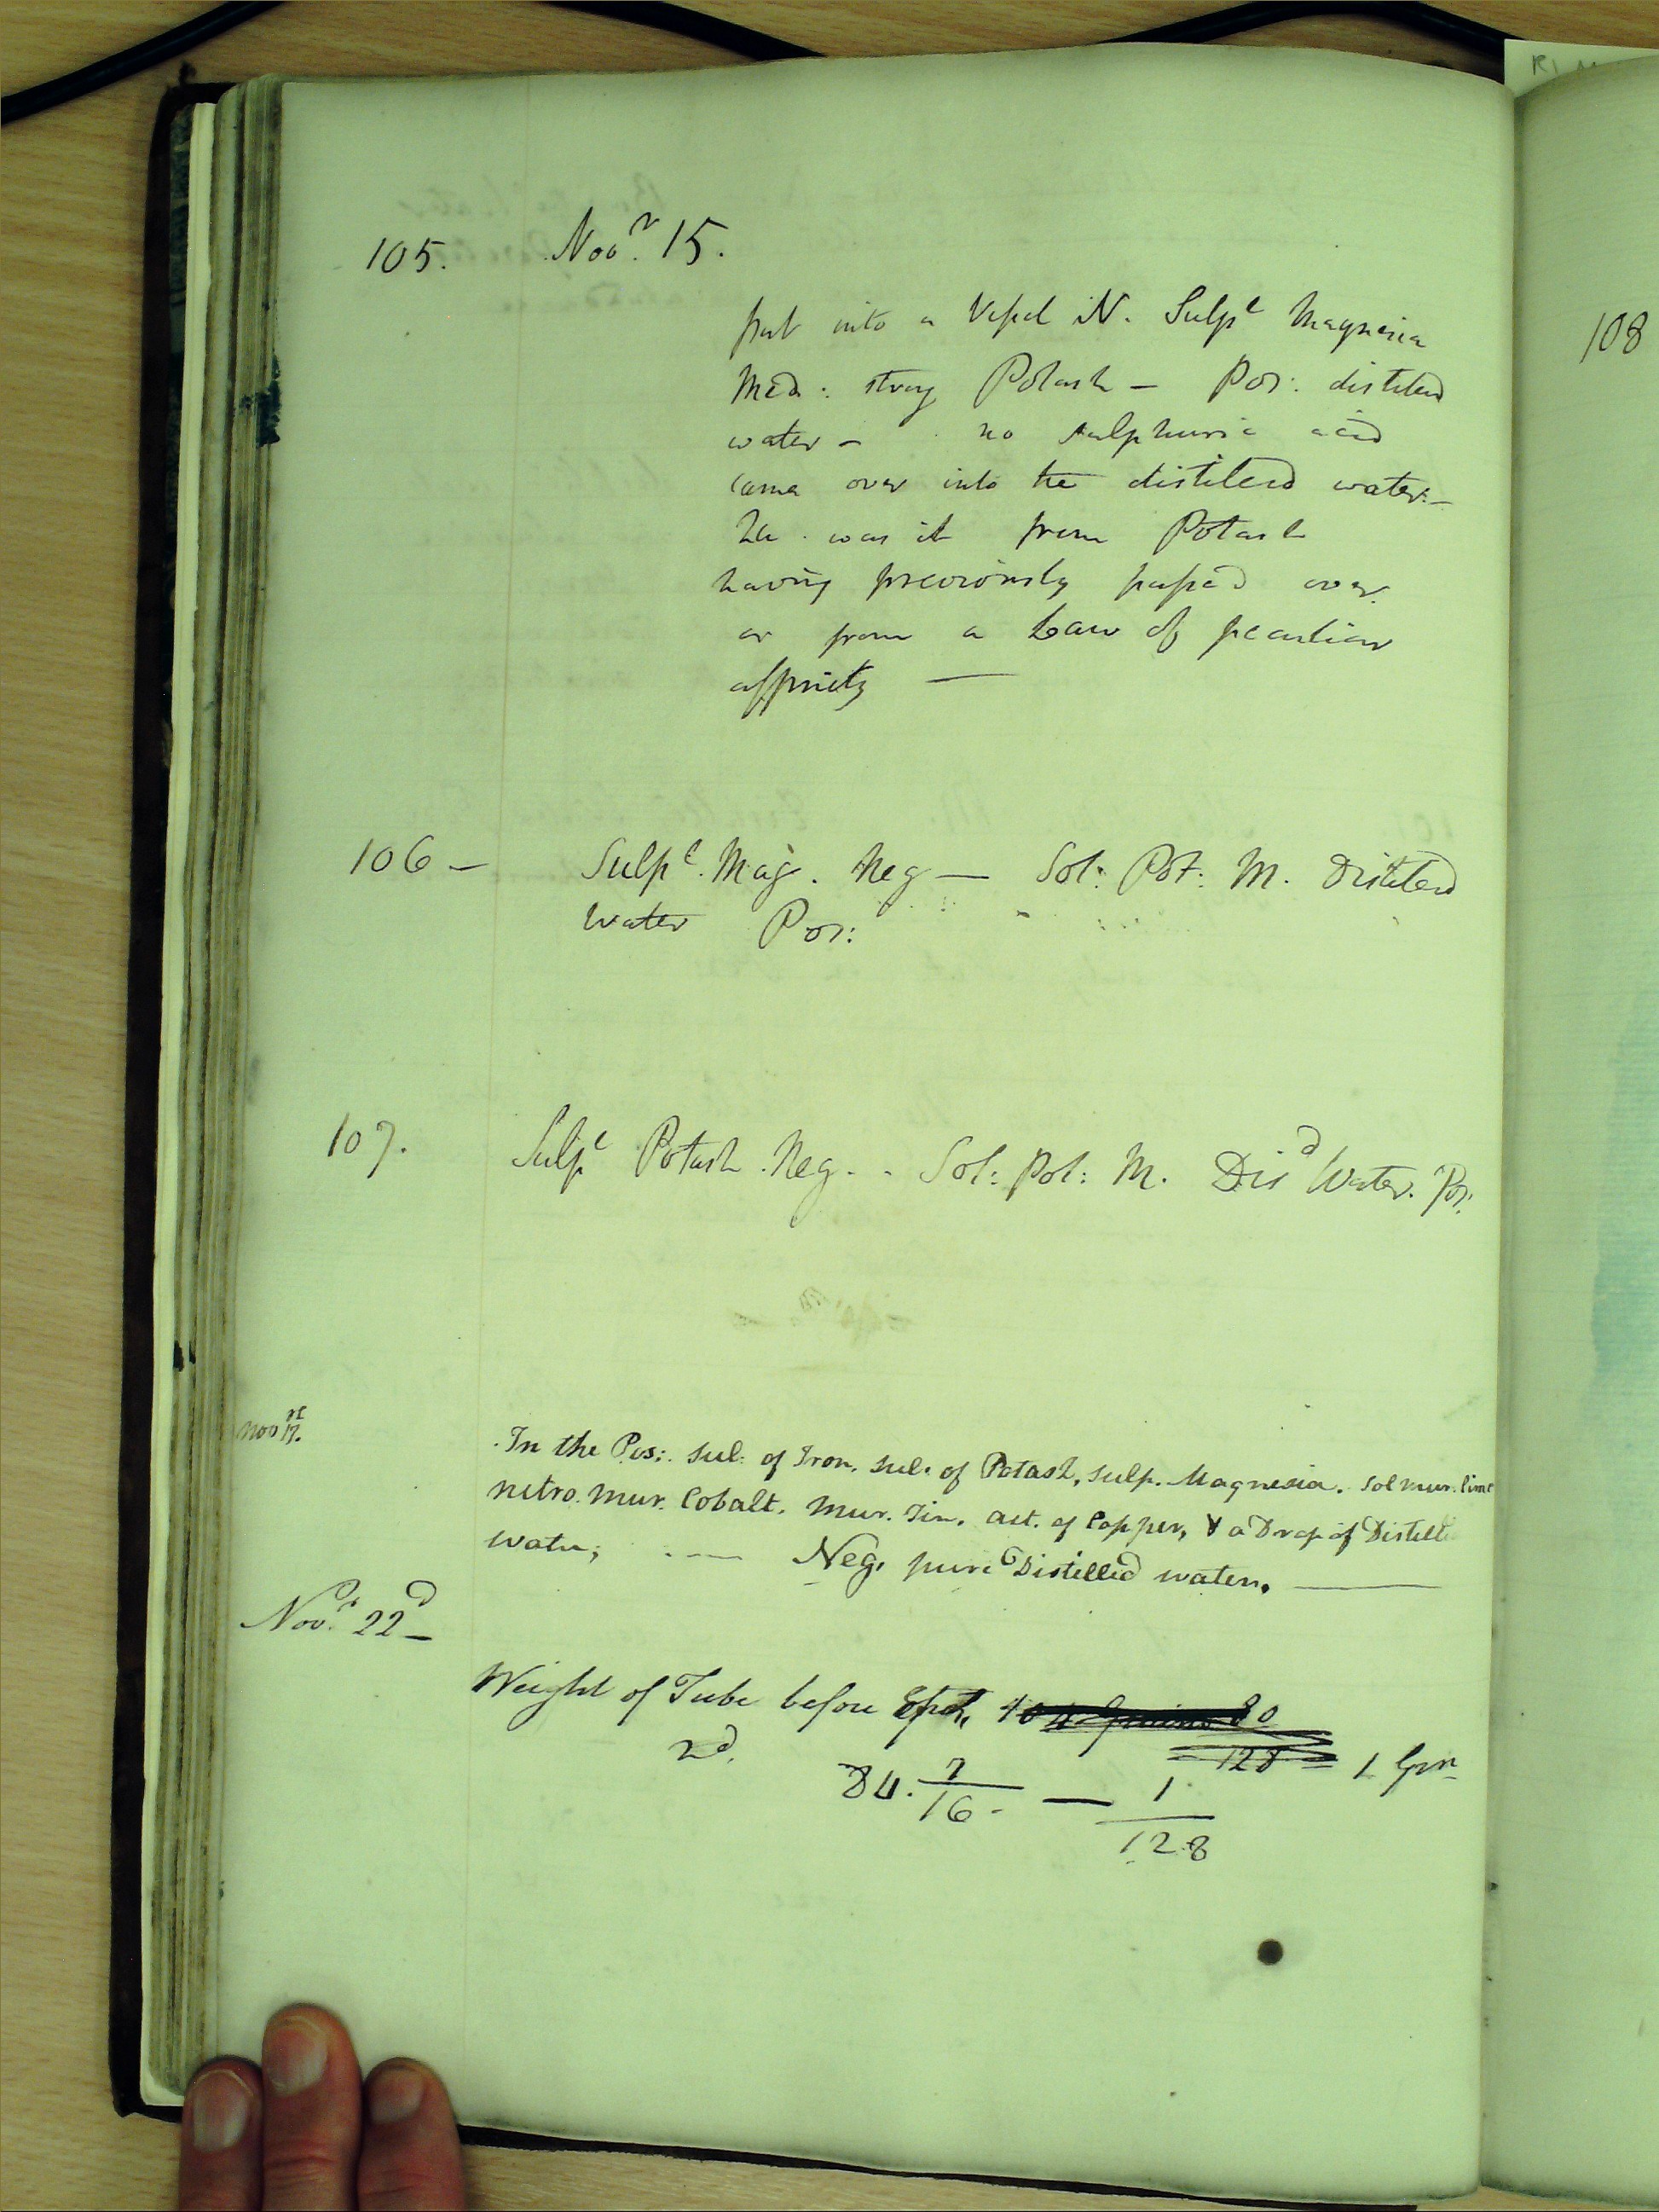 105. Novr. 15.
put into a Vessel N. Sulpt Magnesia
Med: strong Potash – Pos: distilled
water – no sulphuric acid
came over into the distilled water. –
was it from Potash
having previously passed over
or from a Law of peculiar
affinity —
106 – Sulpt. Mag. Neg — Sol: Pot: M. Distilled
Water Pos:
107. Sulpt Potash. Neg. - Sol: Pot: M. Disd Water. Pos:
Nov 17.
In the Pos: Sul: of Iron, Sul. of Potash, Sulp. Magnesia. Sol mur. lime
nitro. mur. Cobalt. Mur. Tin. act. of Copper, & a Drop of Distilled
water; --- Neg. pure Distilled water. —
Novr. 22d –
Weight of Tube before
2d. 84. 7/16 — 1/128
128 1 Grn
108